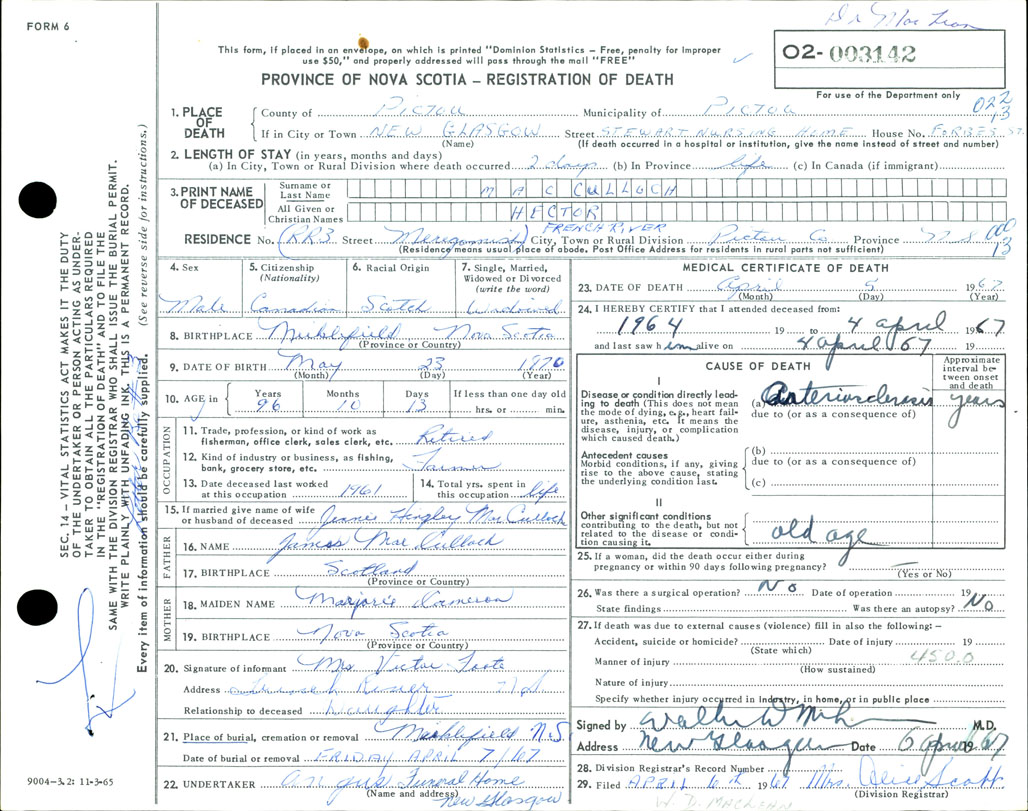 Dr MacLean
FORM 6
This form, if placed in an envelope, on which is printed "Dominion Statistics – Free, penalty for improper
use $50," and properly addressed will pass through the mail "FREE"
02- 003142
PROVINCE OF NOVA SCOTIA – REGISTRATION OF DEATH
For use of the Department only
1. PLACE OF DEATH { County of PICTOU Municipality of PICTOU 022 13
If in City or Town NEW GLASGOW Street STEWART NURSING HOME House No. FORBES ST.
(Name) (If death occurred in a hospital or institution, give the name instead of street and number)
2. LENGTH OF STAY (in years, months and days)
(a) In City, Town or Rural Division where death occurred 2 days (b) In Province life (c) In Canada (if immigrant)
3. PRINT NAME OF DECEASED { Surname or Last Name MAC CULLOCH
All Given or Christian Names HECTOR
FRENCH RIVER
RESIDENCE No. (RR3 Street Merigomish) City, Town or Rural Division Pictou Co Province N S 000 13
(Residence means usual place of abode. Post Office Address for residents in rural parts not sufficient)
SEC. 14 – VITAL STATISTICS ACT MAKES IT THE DUTY
OF THE UNDERTAKER OR PERSON ACTING AS UNDER-
TAKER TO OBTAIN ALL THE PARTICULARS REQUIRED
IN THE "REGISTRATION OF DEATH" AND TO FILE THE
SAME WITH THE DIVISION REGISTRAR WHO SHALL ISSUE THE BURIAL PERMIT.
WRITE PLAINLY WITH UNFADING INK. THIS IS A PERMANENT RECORD.
Every item of information should be carefully supplied. (See reverse side for instructions.)
4. Sex Male
5. Citizenship (Nationality) Canadian
6. Racial Origin Scotch
7. Single, Married, Widowed or Divorced (write the word) Widowed
8. BIRTHPLACE Micklefield Nova Scotia
(Province or Country)
9. DATE OF BIRTH May 23 1970
(Month) (Day) (Year)
10. AGE in { Years 96 Months 10 Days 13 If less than one day old hrs. or min.
OCCUPATION
11. Trade, profession, or kind of work as fisherman, office clerk, sales clerk, etc. Retired
12. Kind of industry or business, as fishing, bank, grocery store, etc. Farmer
13. Date deceased last worked at this occupation 1961
14. Total yrs. spent in this occupation life
15. If married give name of wife or husband of deceased Mac Culloch
FATHER
16. NAME James Mac Culloch
17. BIRTHPLACE Scotland
(Province or Country)
MOTHER
18. MAIDEN NAME Marjorie Cameron
19. BIRTHPLACE Nova Scotia
(Province or Country)
20. Signature of informant Mrs Victor Foote
Address French River N S
Relationship to deceased Daughter
21. Place of burial, cremation or removal Micklefield N.S.
Date of burial or removal FRIDAY APRIL 7/67
22. UNDERTAKER Angus Funeral Home
(Name and address) New Glasgow
9004-3.2: 11-3-65
MEDICAL CERTIFICATE OF DEATH
23. DATE OF DEATH April 5 1967
(Month) (Day) (Year)
24. I HEREBY CERTIFY that I attended deceased from:
1964 19 to 4 april 1967
and last saw him alive on 4 april 67 19
CAUSE OF DEATH
Approximate interval between onset and death
I
Disease or condition directly leading to death (This does not mean the mode of dying, e.g., heart failure, asthenia, etc. It means the disease, injury, or complication which caused death.)
(a) Arteriosclerosis years
due to (or as a consequence of)
Antecedent causes
Morbid conditions, if any, giving rise to the above cause, stating the underlying condition last.
(b)
due to (or as a consequence of)
(c)
II
Other significant conditions
contributing to the death, but not related to the disease or condition causing it. old age
25. If a woman, did the death occur either during
pregnancy or within 90 days following pregnancy?
(Yes or No)
26. Was there a surgical operation? No Date of operation 19
State findings Was there an autopsy? No
27. If death was due to external causes (violence) fill in also the following:–
Accident, suicide or homicide? Date of injury 19
(State which)
Manner of injury 450.0
(How sustained)
Nature of injury
Specify whether injury occurred in industry, in home, or in public place
Signed by M.D.
Address New Glasgow Date 6 April 67
28. Division Registrar's Record Number
29. Filed APRIL 6th 1967 Mrs. Alice Scott
(Division Registrar)
W. D. MACLEAN